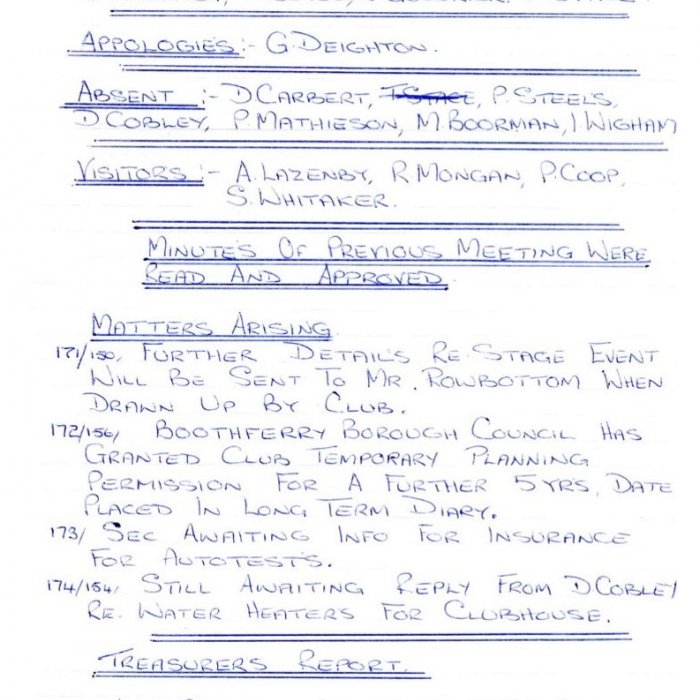 APPOLOGIES :- G. DEIGHTON.
ABSENT :- D CARBERT, P. STEELS,
D COBLEY, P. MATHIESON, M. BOORMAN, I WIGHAM
VISITORS :- A. LAZENBY, R MONGAN, P. COOP,
S. WHITAKER.
MINUTE'S OF PREVIOUS MEETING WERE
READ AND APPROVED.
MATTERS ARISING.
171/150, FURTHER DETAIL'S RE. STAGE EVENT
WILL BE SENT TO MR. ROWBOTTOM WHEN
DRAWN UP BY CLUB.
172/156, BOOTHFERRY BOROUGH COUNCIL HAS
GRANTED CLUB TEMPORARY PLANNING
PERMISSION FOR A FURTHER 5 YRS, DATE
PLACED IN LONG TERM DIARY.
173/ SEC AWAITING INFO FOR INSURANCE
FOR AUTOTEST'S.
174/154, STILL AWAITING REPLY FROM D COBLEY
RE. WATER HEATERS FOR CLUBHOUSE.
TREASURERS REPORT.